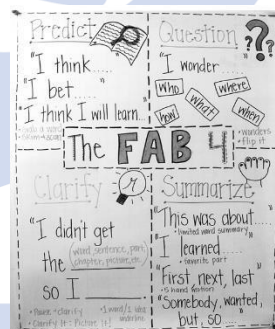 Predict
"I think.....
"I bet..... "
"I think I will learn...
The FAB 4
Question
"I wonder ....."
Who
where
what
how
when
• wonders
• flip it
Clarify
"I didn't get
the (word, sentence, part,
chapter, picture, etc.)
so I
• Reuse + clarify
• Clarify It: Picture It!
underline
Summarize
"This was about.....
• limited word summary
"I learned.....
• favorite part
"First, next, last"
• 5 hand motion
"Somebody, wanted,
but, so ....."